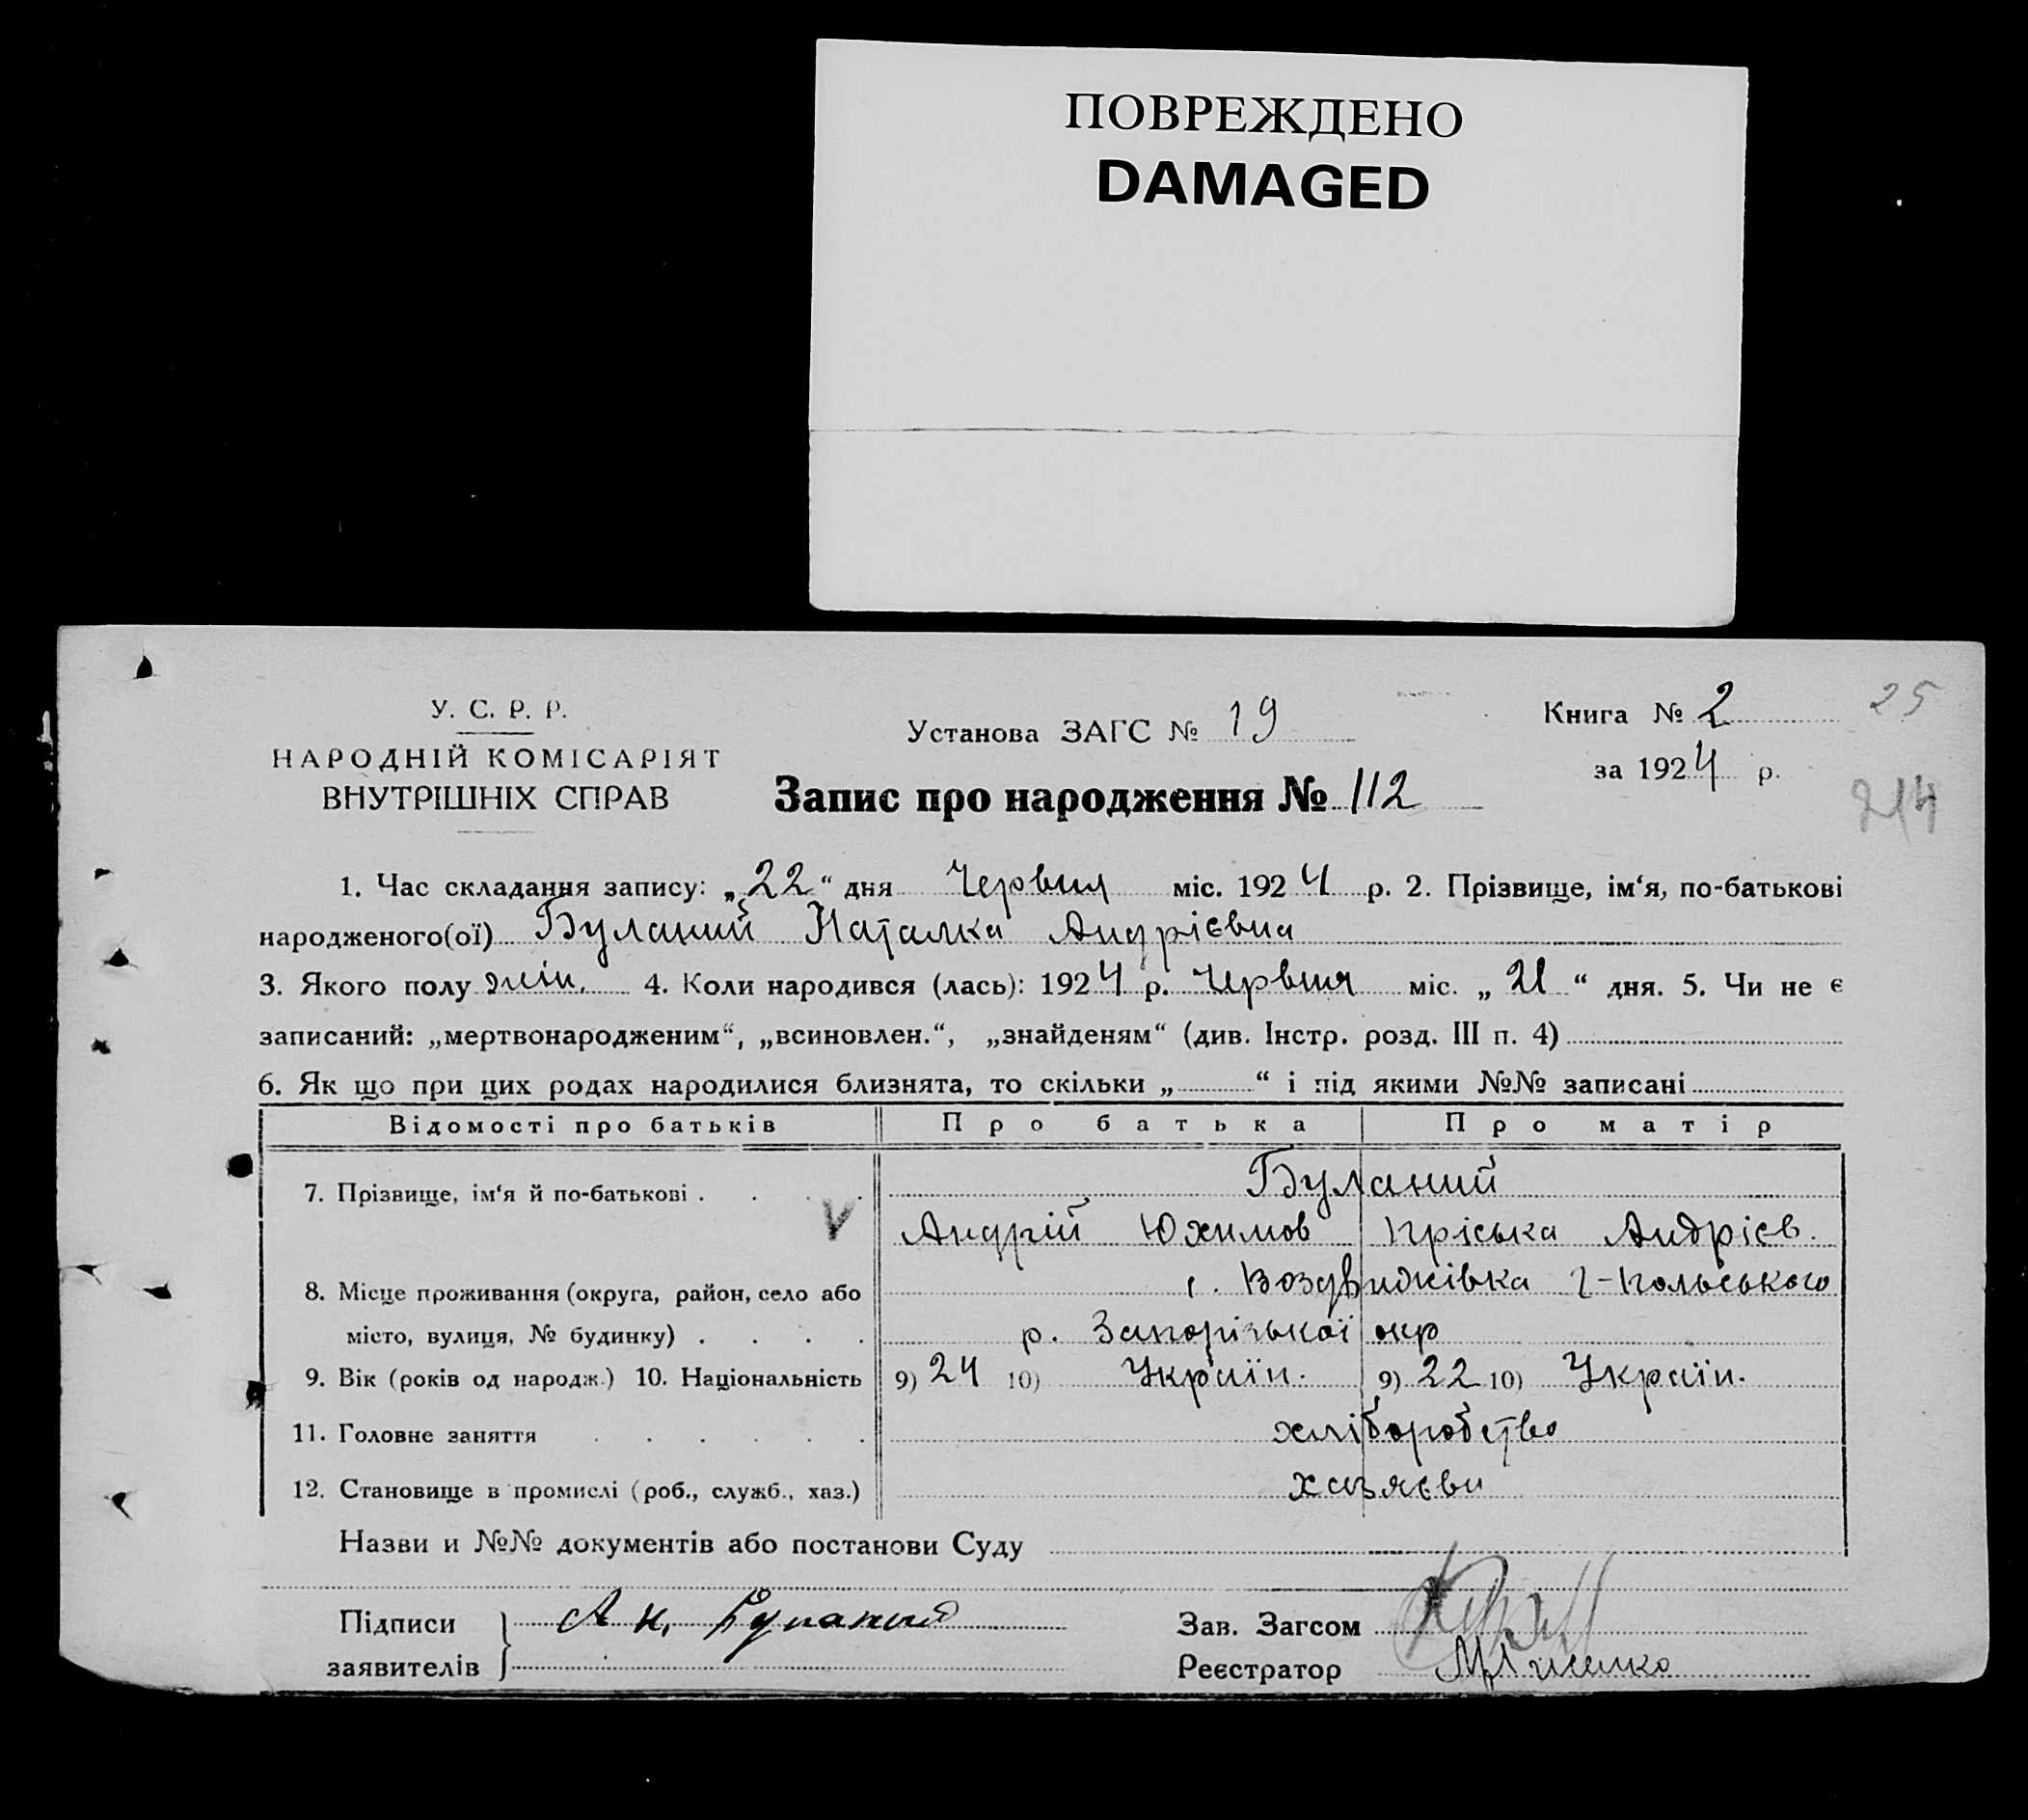 ПОВРЕЖДЕНО
DAMAGED
У. С. Р. Р.
НАРОДНІЙ КОМІСАРІЯТ
ВНУТРІШНІХ СПРАВ
Установа ЗАГС № 19
Запис про народження № 112
Книга № 2
25
за 1924 р.
1. Час складання запису: „22“ дня Червня міс. 1924 р. 2. Прізвище, ім‘я, по-батькові
народженого(ої) Буланий Наталка Андрієвна
3. Якого полу жін. 4. Коли народився (лась): 1924 р. Червня міс. „21“ дня. 5. Чи не є
записаний: „мертвонародженим“, „всиновлен.“, „знайденям“ (див. Інстр. розд. III п. 4)
6. Як що при цих родах народилися близнята, то скільки „ “ і під якими №№ записані
Відомості про батьків Про батька Про матір
7. Прізвище, ім‘я й по-батькові . . . . Буланий
V Андрій Юхимов Пріська Андрієв.
8. Місце проживання (округа, район, село або с. Воздвижівка Г-Польського
місто, вулиця, № будинку) . . . . р. Запорізької окр
9. Вік (років од народж.) 10. Національність 9) 24 10) Україн. 9) 22 10) Україн.
11. Головне заняття . . . . . . хліборобство
12. Становище в промислі (роб., служб., хаз.) хазяєви
Назви и №№ документів або постанови Суду
Підписи Буланый Зав. Загсом
заявителів Реєстратор